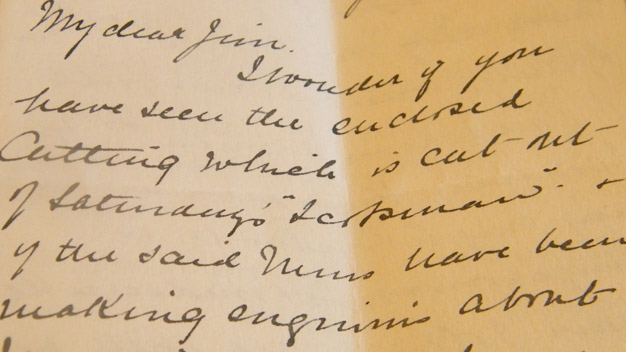 My dear Jim.
I wonder if you
have seen the enclosed
Cutting which is cut out
of Saturday's "Scotsman". +
if the said Mess have been
making enquiries about